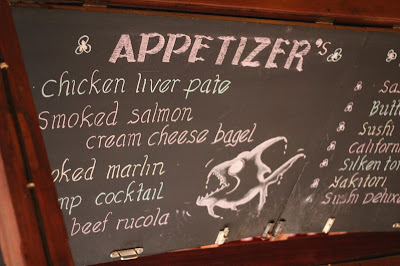 APPETIZER's
Chicken liver pate
Smoked salmon
cream cheese bagel
oked marlin
mp cocktail
beef rucola
Sa
Butt
Sushi
California
Silken to
Yakitori
Sushi Deluxe